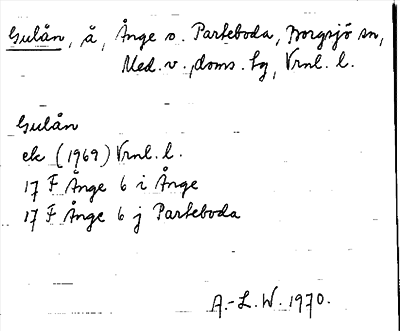 Gulån, å, Ånge o. Parteboda, Borgsjö sn,
Med. v. doms. tg, Vrnl. l.
Gulån
ek (1969) Vrnl. l.
17 F Ånge 6 i Ånge
17 F Ånge 6 j Parteboda
A.-L. W. 1970.